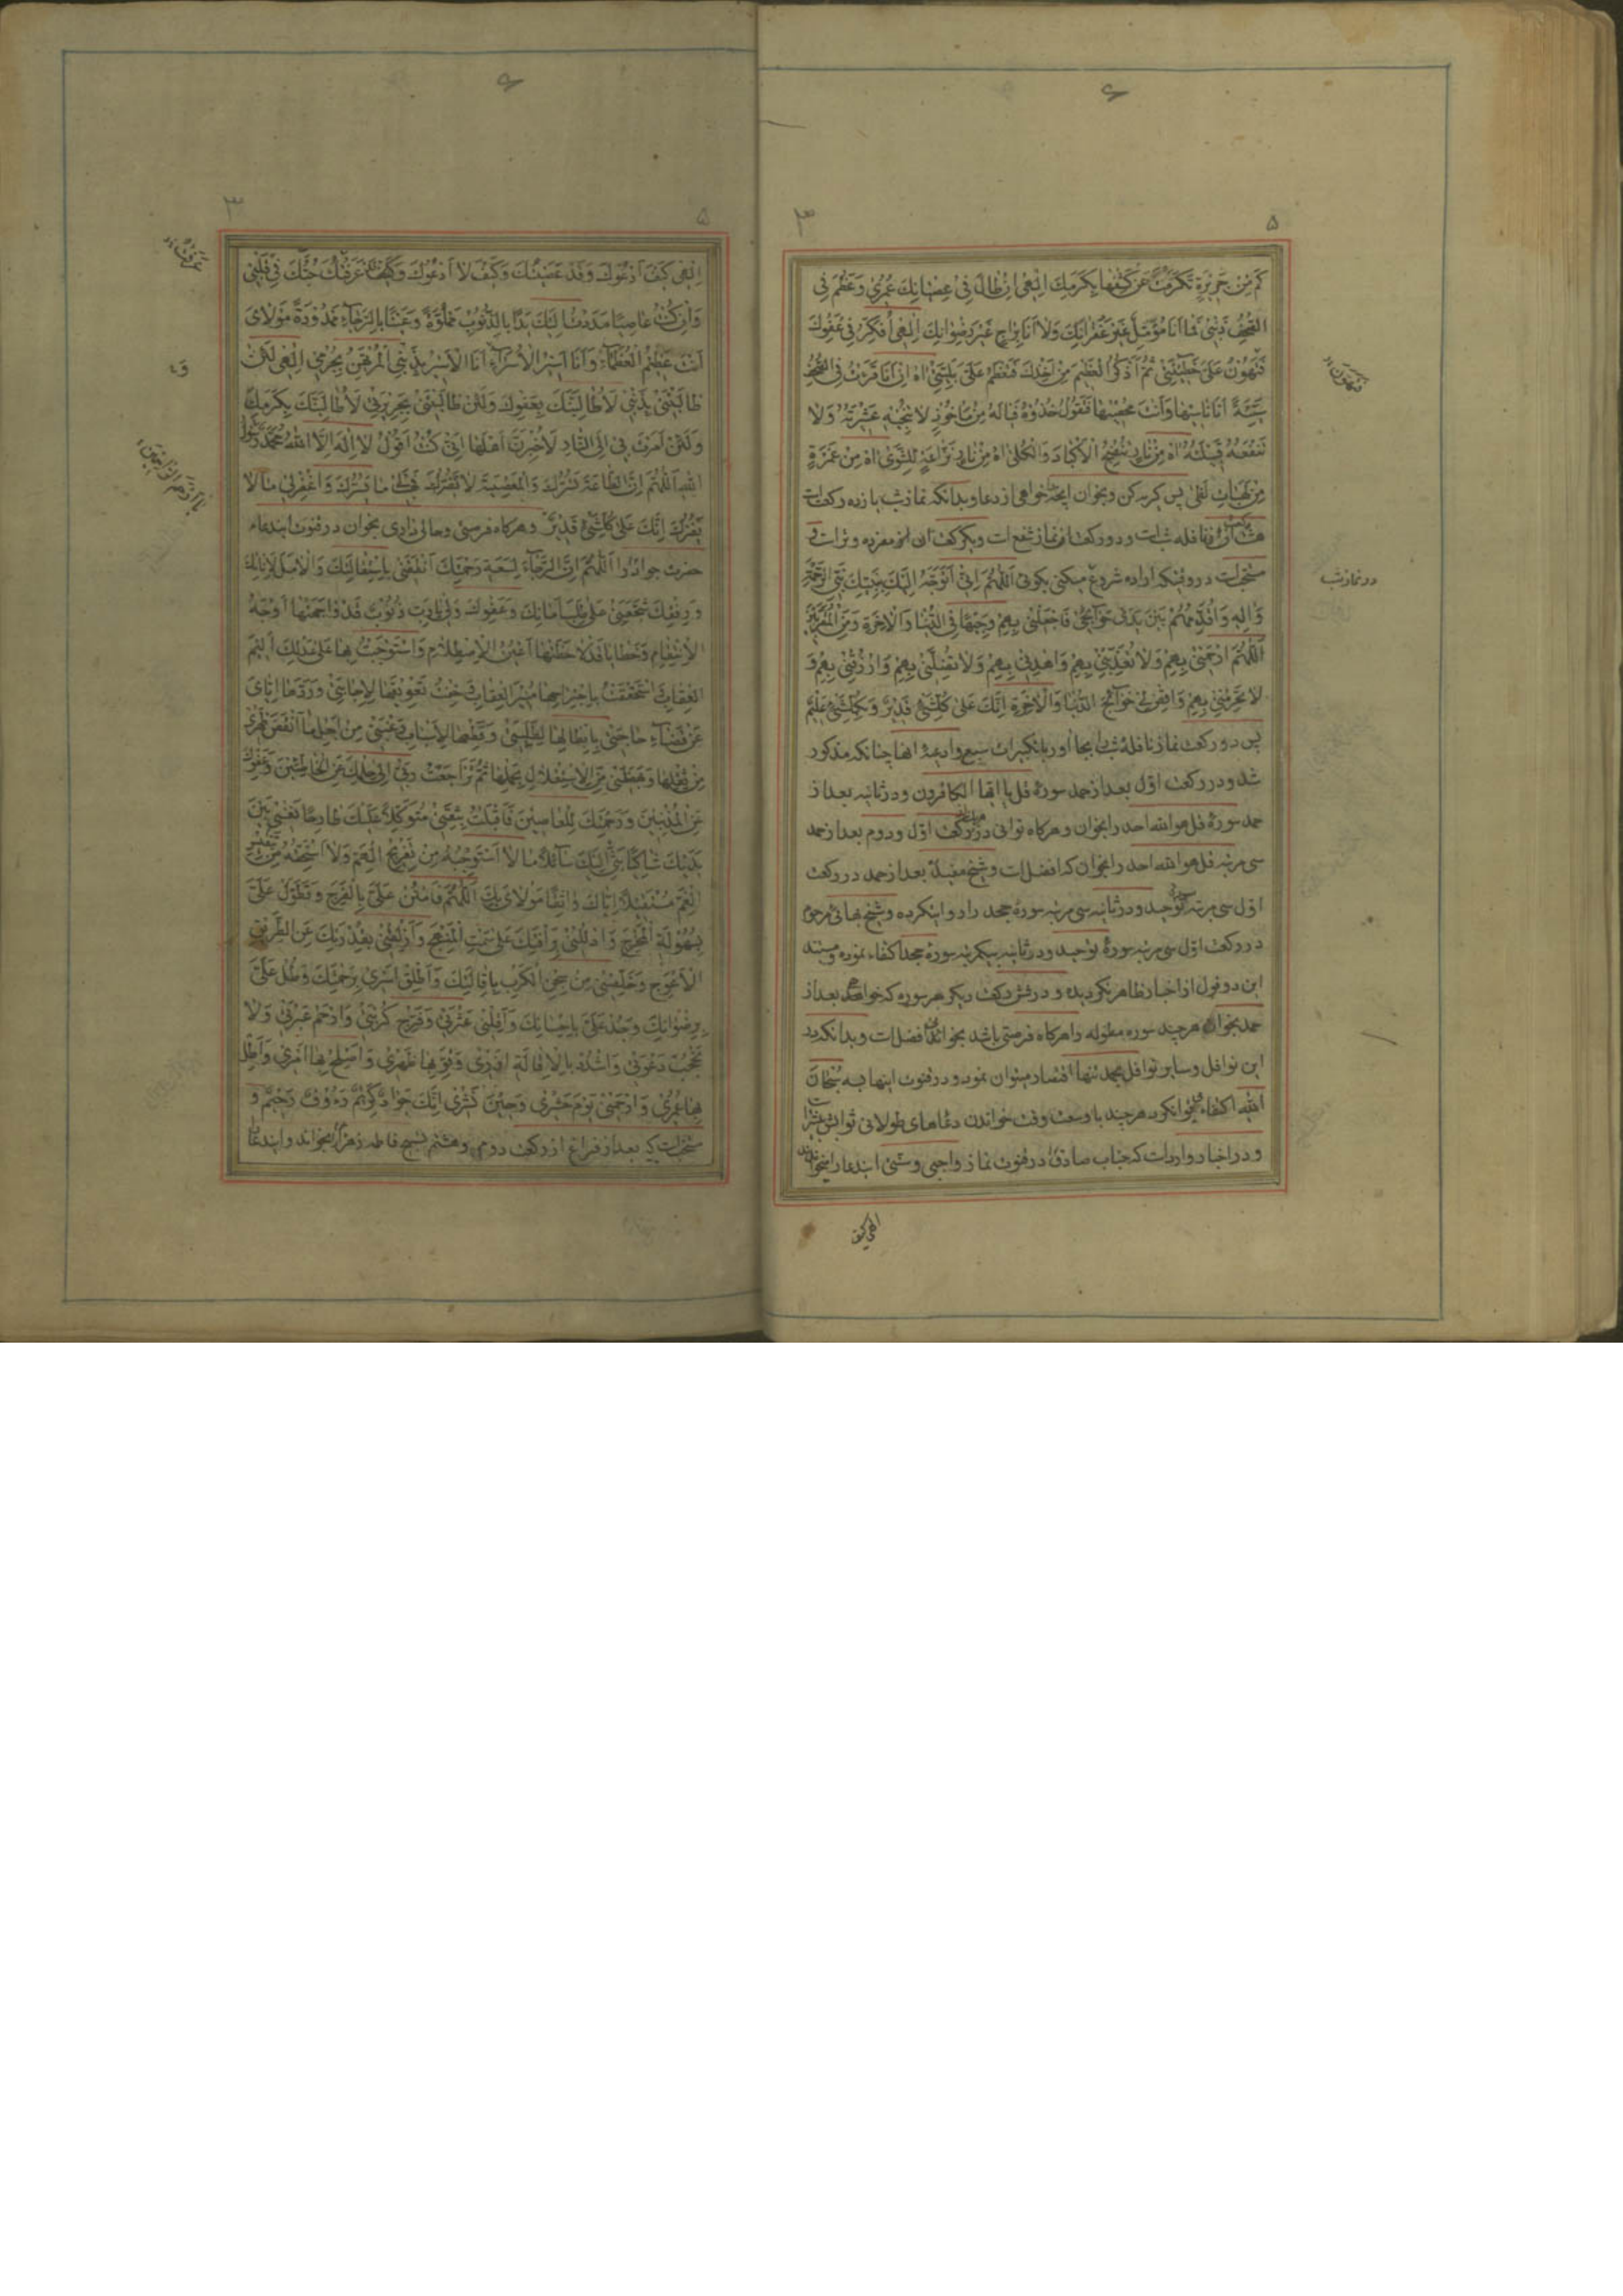 كَمْ مِنْ جَرِيرَةٍ تَكَرَّمْتَ عَنْ كَشْفِهَا بِكَرَمِكَ اِلٰهِى اِنْ طَالَ فِى عِصْيَانِكَ عُمْرِى وَعَظُمَ فِى
الصُّحُفِ ذَنْبِى فَمَا اَنَا مُؤَمِّلٌ غَيْرَ غُفْرَانِكَ وَلَا اَنَا بِرَاجٍ غَيْرَ رِضْوَانِكَ اِلٰهِى اُفَكِّرُ فِى عَفْوِكَ
فَتَهُونُ عَلَىَّ خَطِيئَتِى ثُمَّ اَذْكُرُ الْعَظِيمَ مِنْ اَخْذِكَ فَتَعْظُمُ عَلَىَّ بَلِيَّتِى اٰهِ اِنْ اَنَا قَرَاْتُ فِى الصُّحُفِ
سَيِّئَةً اَنَا نَاسِيهَا وَاَنْتَ مُحْصِيهَا فَتَقُولُ خُذُوهُ فَيَالَهُ مِنْ مَاخُوذٍ لَا تُنْجِيهِ عَشِيرَتُهُ وَلَا
تَنْفَعُهُ قَبِيلَتُهُ اٰهِ مِنْ نَارٍ تُنْضِجُ الْاَكْبَادَ وَالْكُلٰى اٰهِ مِنْ نَارٍ نَزَّاعَةٍ لِلشَّوٰى اٰهِ مِنْ غَمْرَةٍ
مِنْ لَهَبَاتِ لَظٰى پس كريه كن وبخوان انچه خواهى از دعا وبدانكه نماز شب يازده ركعت است
هشت ركعت آن نافله شب است ودو ركعت از نماز شفع است ويكركعت آن مفرده وتر است و
مستحب است در وقتيكه اراده شروع ميكنى بكوئى اَللّٰهُمَّ اِنِّى اَتَوَجَّهُ اِلَيْكَ بِنَبِيِّكَ نَبِىِّ الرَّحْمَةِ
وَاٰلِهِ وَاُقَدِّمُهُمْ بَيْنَ يَدَىْ حَوَائِجِى فَاجْعَلْنِى بِهِمْ وَجِيهًا فِى الدُّنْيَا وَالْاٰخِرَةِ وَمِنَ الْمُقَرَّبِينَ
اَللّٰهُمَّ ارْحَمْنِى بِهِمْ وَلَا تُعَذِّبْنِى بِهِمْ وَاهْدِنِى بِهِمْ وَلَا تُضِلَّنِى بِهِمْ وَارْزُقْنِى بِهِمْ وَ
لَا تَحْرِمْنِى بِهِمْ وَاقْضِ لِى حَوَائِجَ الدُّنْيَا وَالْاٰخِرَةِ اِنَّكَ عَلٰى كُلِّ شَىْءٍ قَدِيرٌ وَبِكُلِّ شَىْءٍ عَلِيمٌ
پس دو ركعت نماز نافله شب را بجا آور با تكبيرات سبع وادعيه آنها چنانكه مذكور
شد ودر ركعت اول بعد از حمد سورهٔ قل يا ايها الكافرون ودر ثانيه بعد از
حمد سورهٔ قل هو الله احد را بخوان وهركاه توانى در ركعت اول ودوم بعد از حمد
سى مرتبه قل هو الله احد را بخوان كه افضل است وشيخ مفيد بعد از حمد در ركعت
اول سى مرتبه سورهٔ توحيد ودر ثانيه سى مرتبه سورهٔ جحد را ذكر كرده وشيخ بهائى مرحوم
در ركعت اول سى مرتبه سورهٔ توحيد ودر ثانيه يكمرتبه سورهٔ جحد اكتفاء نموده ومستند
اين دو قول از اخبار ظاهر نكرديده ودر شش ركعت ديكر هر سوره كه خواهى بعد از
حمد بخوان هر چند سوره مطوله را هركاه فرصتى باشد بخواند افضل است وبدانكه در
اين نوافل وساير نوافل بحمد تنها اقتصار ميتوان نمود ودر قنوت اينها به سبحان
الله اكتفاء ميتوان كرد هر چند با وسعت وقت خواندن دعاهاى طولانى ثوابش بيشتر است
ودر اخبار وارد است كه جناب صادق در قنوت نماز واجبى وسنتى ايندعا را ميخواندند
فَتَهُونُ
در نماز شب
الهى كيف
۵
۳
۶
اِلٰهِى كَيْفَ اَدْعُوكَ وَقَدْ عَصَيْتُكَ وَكَيْفَ لَا اَدْعُوكَ وَقَدْ عَرَفْتُكَ حُبُّكَ فِى قَلْبِى
وَاِنْ كُنْتُ عَاصِيًا مَدَدْتُ اِلَيْكَ يَدًا بِالذُّنُوبِ مَمْلُوَّةً وَعَيْنًا بِالرَّجَاءِ مَمْدُودَةً مَوْلَاىَ
اَنْتَ عَظِيمُ الْعُظَمَاءِ وَاَنَا اَسِيرُ الْاُسَرَاءِ اَنَا الْاَسِيرُ بِذَنْبِى الْمُرْتَهَنُ بِجُرْمِى اِلٰهِى لَئِنْ
طَالَبْتَنِى بِذَنْبِى لَاُطَالِبَنَّكَ بِعَفْوِكَ وَلَئِنْ طَالَبْتَنِى بِجَرِيرَتِى لَاُطَالِبَنَّكَ بِكَرَمِكَ
وَلَئِنْ اَمَرْتَ بِى اِلَى النَّارِ لَاُخْبِرَنَّ اَهْلَهَا اِنِّى كُنْتُ اَقُولُ لَا اِلٰهَ اِلَّا اللهُ مُحَمَّدٌ رَسُولُ
اللهِ اَللّٰهُمَّ اِنَّ الطَّاعَةَ تَسُرُّكَ وَالْمَعْصِيَةَ لَا تَضُرُّكَ فَهَبْ لِى مَا يَسُرُّكَ وَاغْفِرْ لِى مَا لَا
يَضُرُّكَ اِنَّكَ عَلٰى كُلِّ شَىْءٍ قَدِيرٌ وهركاه فرصتى وحالى دارى بخوان در قنوت ايندعاء
حضرت جواد را اَللّٰهُمَّ اِنَّ الرَّجَاءَ لِسَعَةِ رَحْمَتِكَ اَنْطَقَنِى بِاسْتِقَالَتِكَ وَالْاَمَلَ لِاَنَاتِكَ
وَرِفْقِكَ شَجَّعَنِى عَلٰى طَلَبِ اَمَانِكَ وَعَفْوِكَ وَلِى يَا رَبِّ ذُنُوبٌ قَدْ وَاجَهَتْهَا اَوْجُهُ
الْاِنْتِقَامِ وَخَطَايَا قَدْ لَاحَظَتْهَا اَعْيُنُ الْاِصْطِلَامِ وَاسْتَوْجَبْتُ بِهَا عَلٰى عَدْلِكَ اَلِيمَ
الْعَذَابِ وَاسْتَحْقَقْتُ بِاجْتِرَاحِهَا مُبِيرَ الْعِقَابِ وَخِفْتُ تَعْوِيقَهَا لِاِجَابَتِى وَرَدَّهَا اِيَّاىَ
عَنْ قَضَاءِ حَاجَتِى بِاِبْطَالِهَا لِطَلِبَتِى وَقَطْعِهَا لِاَسْبَابِ رَغْبَتِى مِنْ اَجْلِ مَا اَنْقَضَ ظَهْرِى
مِنْ ثِقْلِهَا وَبَهَظَنِى مِنَ الْاِسْتِقْلَالِ بِحَمْلِهَا ثُمَّ تَرَاجَعْتُ رَبِّ اِلٰى حِلْمِكَ عَنِ الْخَاطِئِينَ وَعَفْوِكَ
عَنِ الْمُذْنِبِينَ وَرَحْمَتِكَ لِلْعَاصِينَ فَاَقْبَلْتُ بِثِقَتِى مُتَوَكِّلًا عَلَيْكَ طَارِحًا نَفْسِى بَيْنَ
يَدَيْكَ شَاكِيًا بَثِّى اِلَيْكَ سَائِلًا مَا لَا اَسْتَوْجِبُهُ مِنْ تَفْرِيجِ الْهَمِّ وَلَا اَسْتَحِقُّهُ مِنْ تَنْفِيسِ
الْغَمِّ مُسْتَقِيلًا اِيَّاكَ وَاثِقًا مَوْلَاىَ بِكَ اَللّٰهُمَّ فَامْنُنْ عَلَىَّ بِالْفَرَجِ وَتَطَوَّلْ عَلَىَّ
بِسُهُولَةِ الْمَخْرَجِ وَادْلُلْنِى بِرَاْفَتِكَ عَلٰى سَمْتِ الْمَنْهَجِ وَاَزْلِقْنِى بِقُدْرَتِكَ عَنِ الطَّرِيقِ
الْاَعْوَجِ وَخَلِّصْنِى مِنْ سِجْنِ الْكَرْبِ بِاِقَالَتِكَ وَاَطْلِقْ اَسْرِى بِرَحْمَتِكَ وَطُلْ عَلَىَّ
بِرِضْوَانِكَ وَجُدْ عَلَىَّ بِاِحْسَانِكَ وَاَقِلْنِى عَثْرَتِى وَفَرِّجْ كُرْبَتِى وَارْحَمْ عَبْرَتِى وَلَا
تَحْجُبْ دَعْوَتِى وَاشْدُدْ بِالْاِقَالَةِ اَزْرِى وَقَوِّ بِهَا ظَهْرِى وَاَصْلِحْ بِهَا اَمْرِى وَاَطِلْ
بِهَا عُمْرِى وَارْحَمْنِى يَوْمَ حَشْرِى وَحِينَ نَشْرِى اِنَّكَ جَوَادٌ كَرِيمٌ رَءُوفٌ رَحِيمٌ و
مستحب است كه بعد از فراغ از ركعت دوم وهشتم تسبيح فاطمه زهرا بخواند وايندعا را
۵
۳
۶